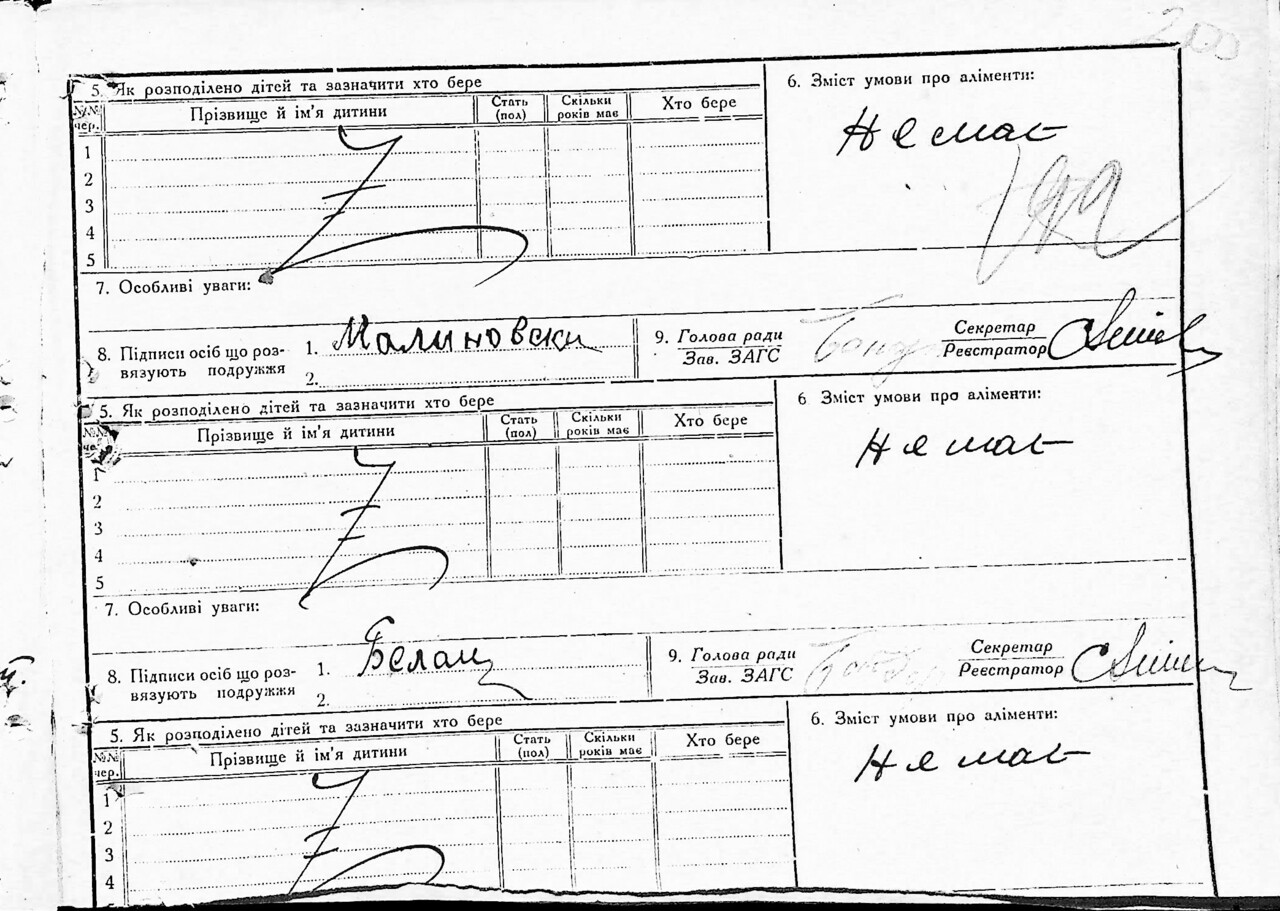 200
5. Як розподілено дітей та зазначити хто бере
№№ чер.
Прізвище й ім'я дитини
Стать (пол)
Скільки років має
Хто бере
1
2
3
4
5
6. Зміст умови про аліменти:
Немає
7. Особливі уваги:
8. Підписи осіб що роз-
вязують подружжя
1. Малиновски
2.
9. Голова ради
Зав. ЗАГС
Секретар
Реєстратор
5. Як розподілено дітей та зазначити хто бере
№№
Прізвище й ім'я дитини
Стать (пол)
Скільки років має
Хто бере
1
2
3
4
5
6 Зміст умови про аліменти:
Немає
7. Особливі уваги:
8. Підписи осіб що роз-
вязують подружжя
1. Белац
2.
9. Голова ради
Зав. ЗАГС
Секретар
Реєстратор
5. Як розподілено дітей та зазначити хто бере
№№ чер.
Прізвище й ім'я дитини
Стать (пол)
Скільки років має
Хто бере
1
2
3
4
6. Зміст умови про аліменти:
Немає